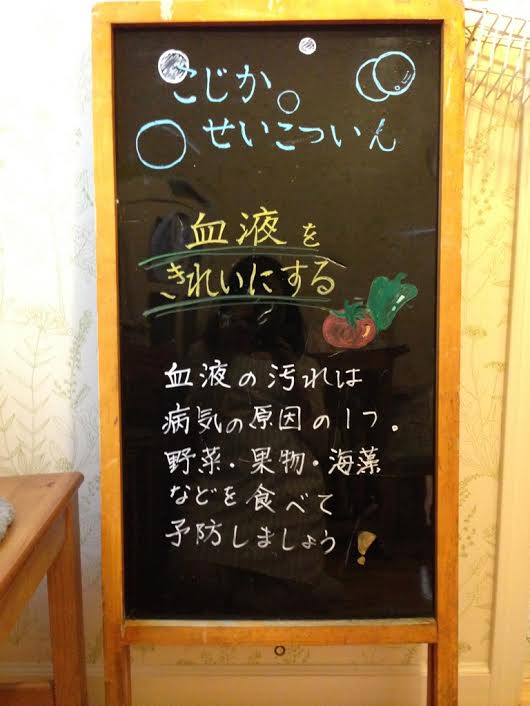 こじか
せいこついん
血液を
きれいにする
血液の汚れは
病気の原因の1つ。
野菜・果物・海藻
などを食べて
予防しましょう!